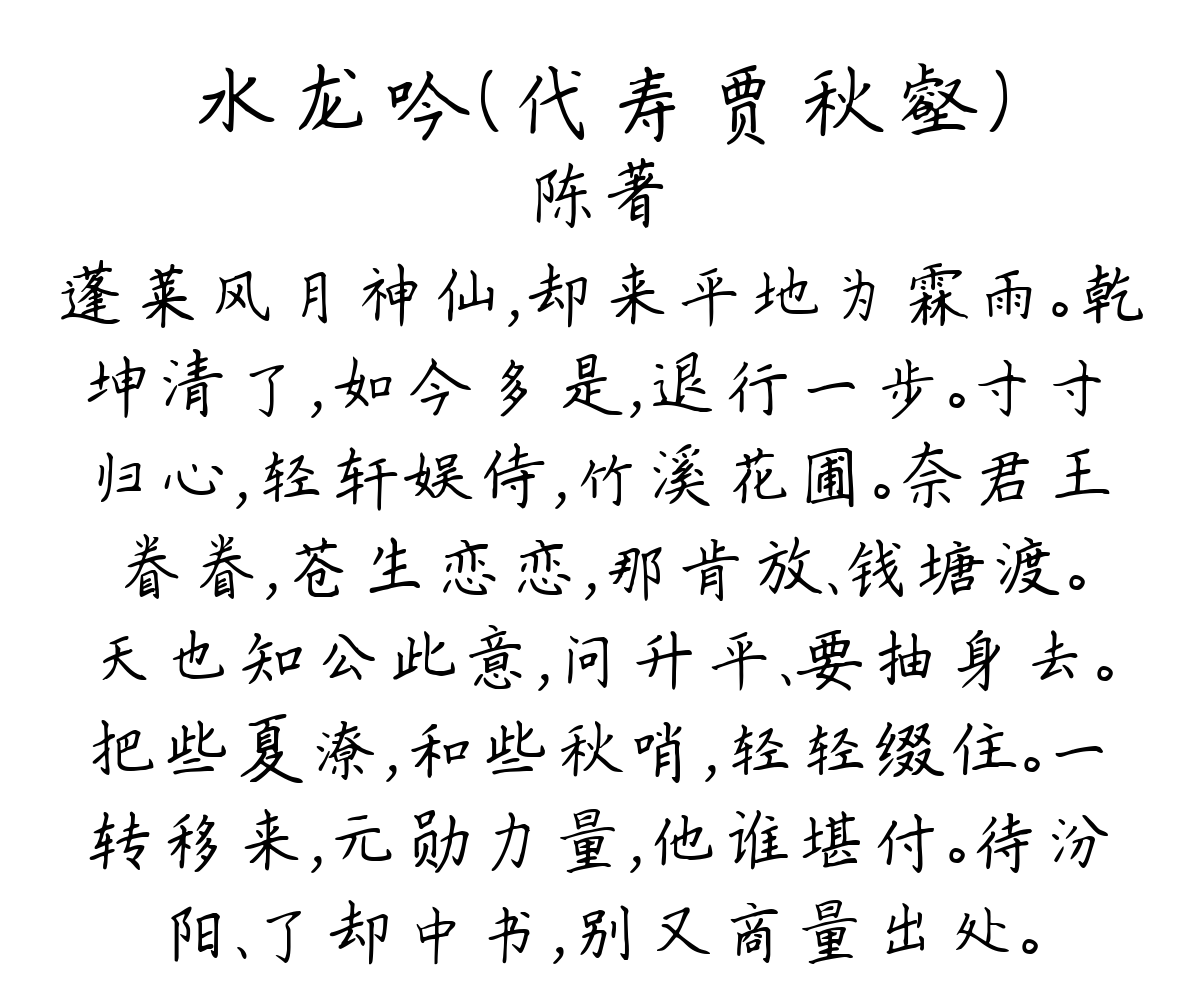 水龙吟(代寿贾秋壑)
陈著
蓬莱风月神仙,却来平地为霖雨。乾
坤清了,如今多是,退行一步。寸寸
归心,轻轩娱侍,竹溪花圃。奈君王
眷眷,苍生恋恋,那肯放、钱塘渡。
天也知公此意,问升平、要抽身去。
把些夏潦,和些秋哨,轻轻缀住。一
转移来,元勋力量,他谁堪付。待汾
阳、了却中书,别又商量出处。